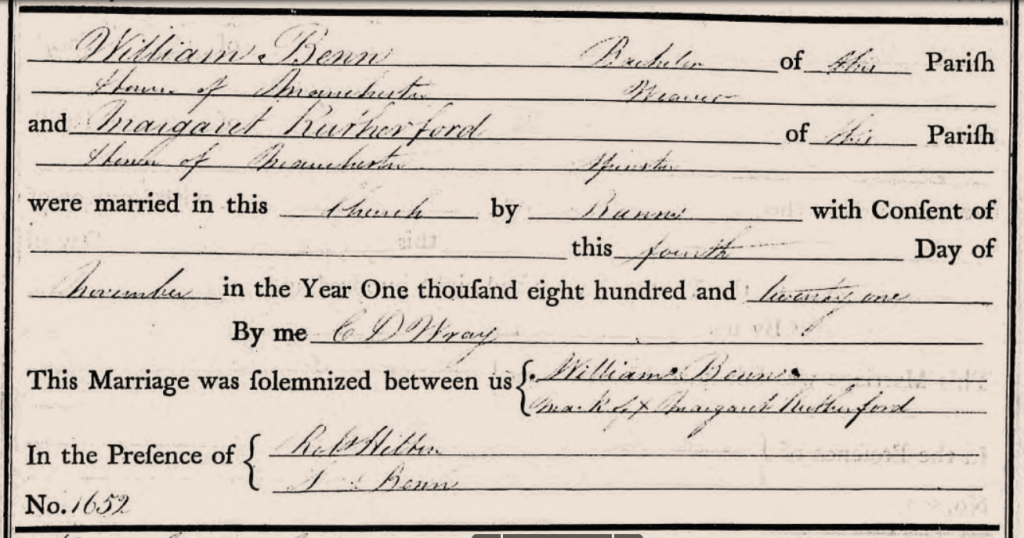 William Benn Bachelor of this Pariſh
Town of Manchester Weaver
and Margaret Rutherford of this Pariſh
Town of Manchester Spinster
were married in this Church by Banns with Conſent of
this fourth Day of
November in the Year One thouſand eight hundred and twenty one
By me C D Wray
This Marriage was ſolemnized between us { William Benn
mark of X Margaret Rutherford
In the Preſence of {
Benn
No. 1652